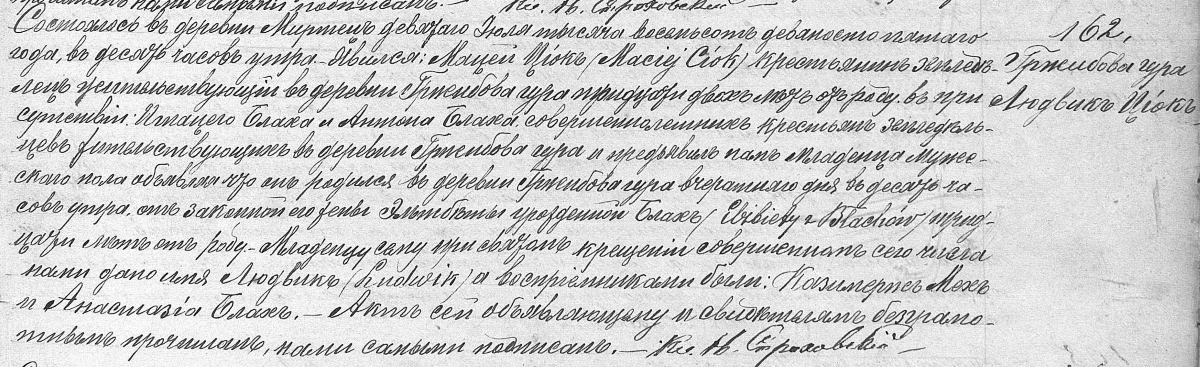 нами самыми подписанъ.— Кс. Н. Строховскій
Состоялось въ деревни Миржец девятаго Іюля тысяча восемьсотъ девяносто пятаго
года, въ десять часовъ утра. Явился: Мацей Ціокъ (Maciej Ciók) крестьянинъ земледѣ-
лецъ жительствующій въ деревни Гржибова гура тридцати двохъ лѣтъ отъ роду, въ при
сутствіи Игнацего Блаха и Антона Блаха совершеннолетнихъ крестьянъ земледѣль-
цевъ жительствующихъ въ деревни Гржибова гура и предъявилъ намъ младенца муже-
скаго пола объявляя что онъ родился въ деревни Гржибова гура вчерашняго дня въ десять ча-
совъ утра отъ законной его жены Эльжбеты урожденной Блахъ (Elżbiety z Błachów) трид-
цати лѣтъ отъ роду.— Младенцу сему при святомъ крещеніи совершенномъ сего числа
нами дано имя Людвикъ (Ludwik) а воспріемниками были: Казимержъ Мехъ
и Анастазіа Блахъ.— Актъ сей объявляющему и свидѣтелямъ безграмо-
тнымъ прочитанъ, нами самыми подписанъ.— Кс. Н. Строховскій—
162.
Гржибова гура
Людвикъ Ціокъ